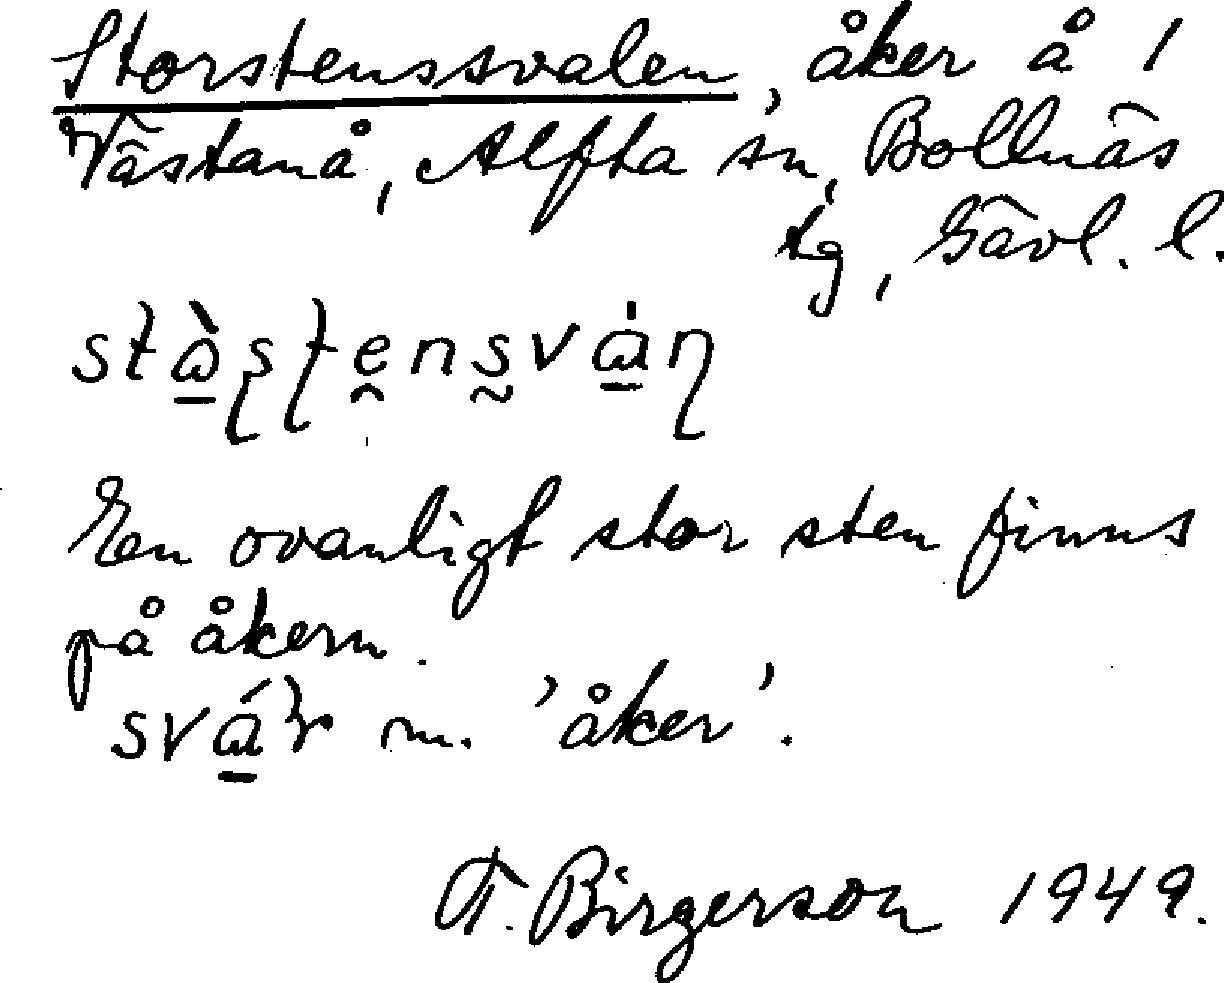 Storstenssvalen, åker å 1
Västanå, Alfta sn, Bollnäs
tg, Gävl. l.
En ovanligt stor sten finns
på åkern.
m. 'åker'.
T. Birgerson 1949.